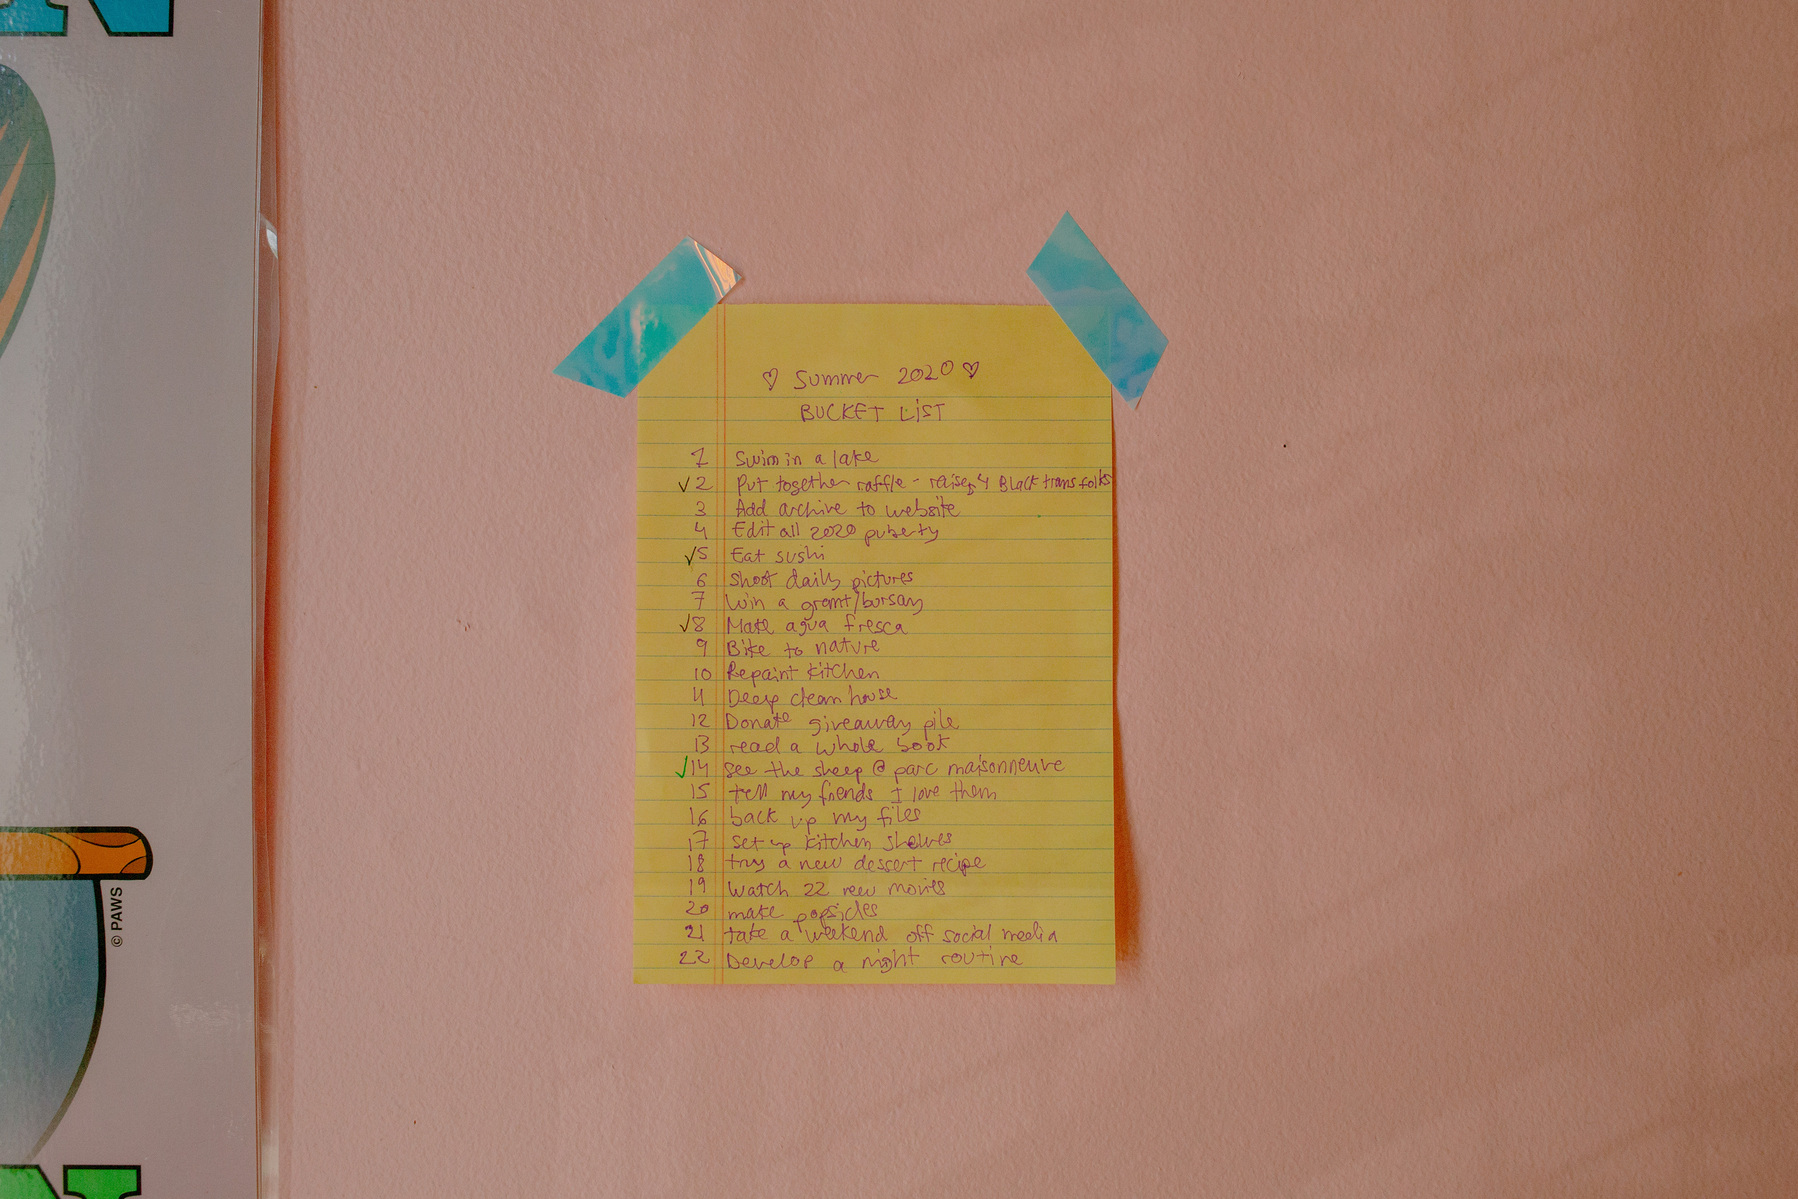 N
© PAWS
N
♡ Summer 2020 ♡
BUCKET LiST
1 Swim in a lake
✓2 Put together raffle - raise $ 4 Black trans folks
3 Add archive to website
4 Edit all 2020 puberty
✓5 Eat sushi
6 shoot daily pictures
7 Win a grant/bursary
✓8 Make agua fresca
9 Bike to nature
10 Repaint kitchen
11 Deep clean house
12 Donate giveaway pile
13 read a whole book
✓14 see the sheep @ parc maisonneuve
15 tell my friends I love them
16 back up my files
17 set up kitchen shelves
18 try a new dessert recipe
19 watch 22 new movies
20 make popsicles
21 take a weekend off social media
22 Develop a night routine